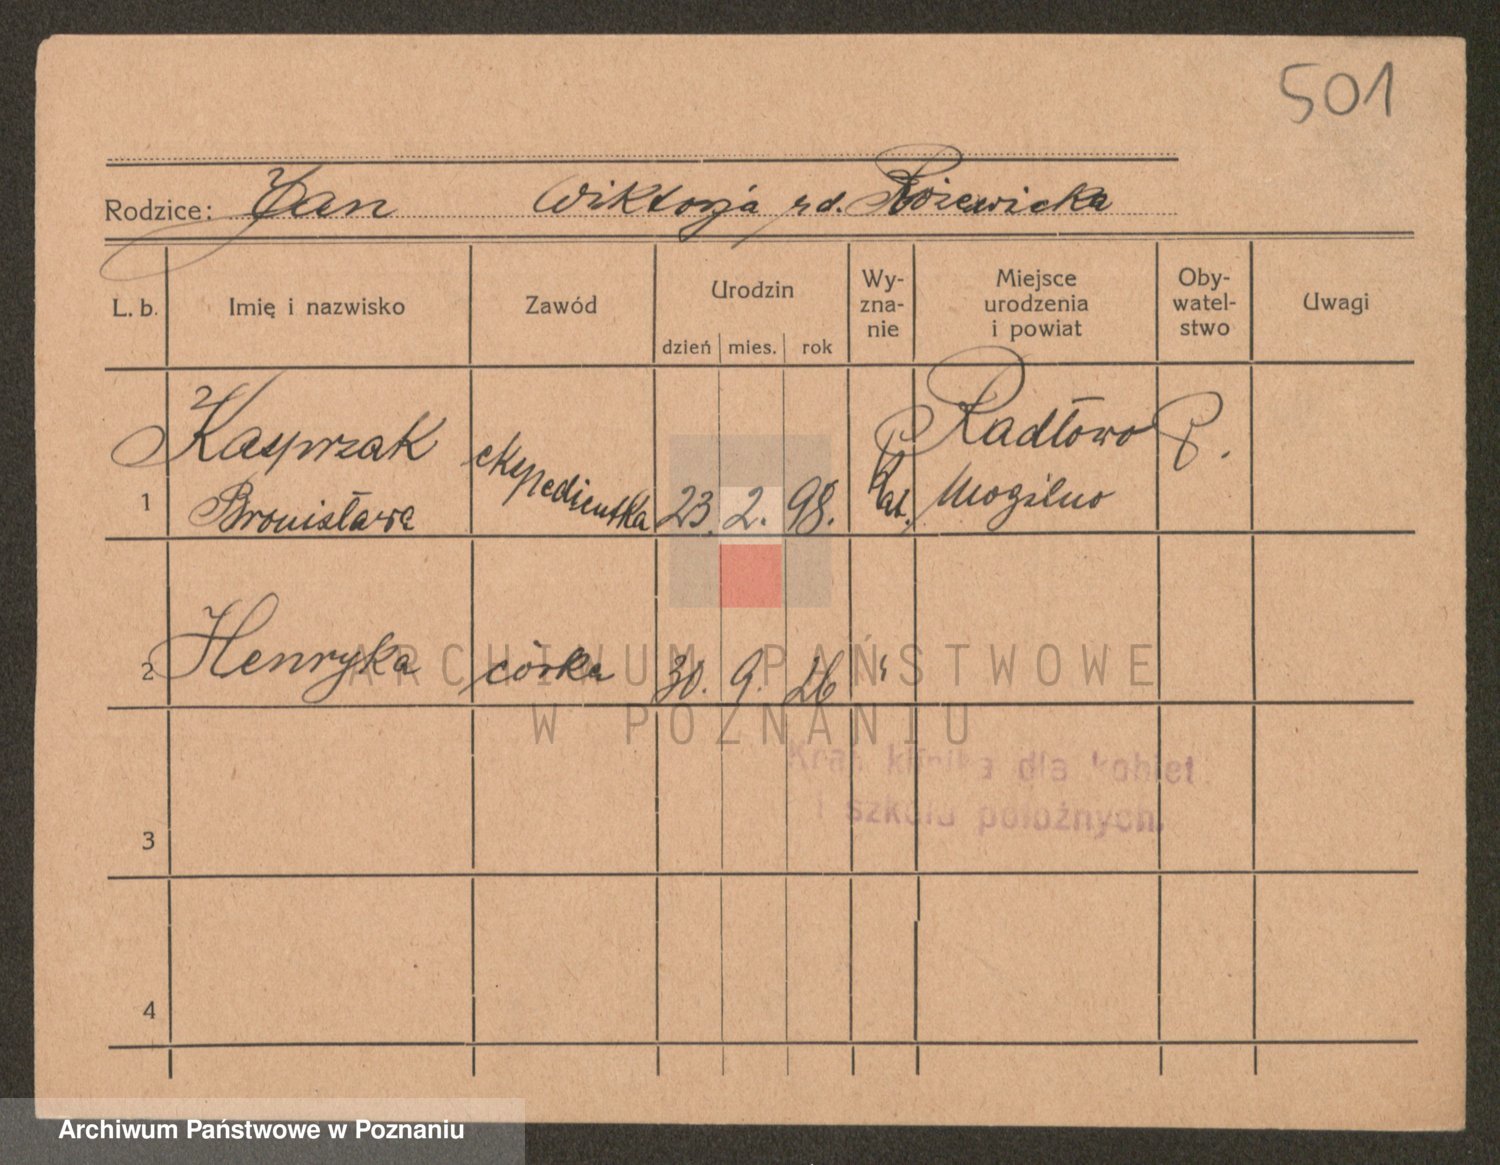 501
Rodzice: Jan Wiktorja rd. Rożewicka
L. b. Imię i nazwisko Zawód Urodzin dzień mies. rok Wy-zna-nie Miejsce urodzenia i powiat Oby-watel-stwo Uwagi
1 Kasprzak Bronisława ekspedientka 23. 2. 98. Rz. kat. Radłowo Mogilno P.
2 Henryka córka 30. 9. 26 "
3
4
ARCHIWUM PAŃSTWOWE
W POZNANIU
Kraj. klinika dla kobiet
i szkoła położnych.
Archiwum Państwowe w Poznaniu